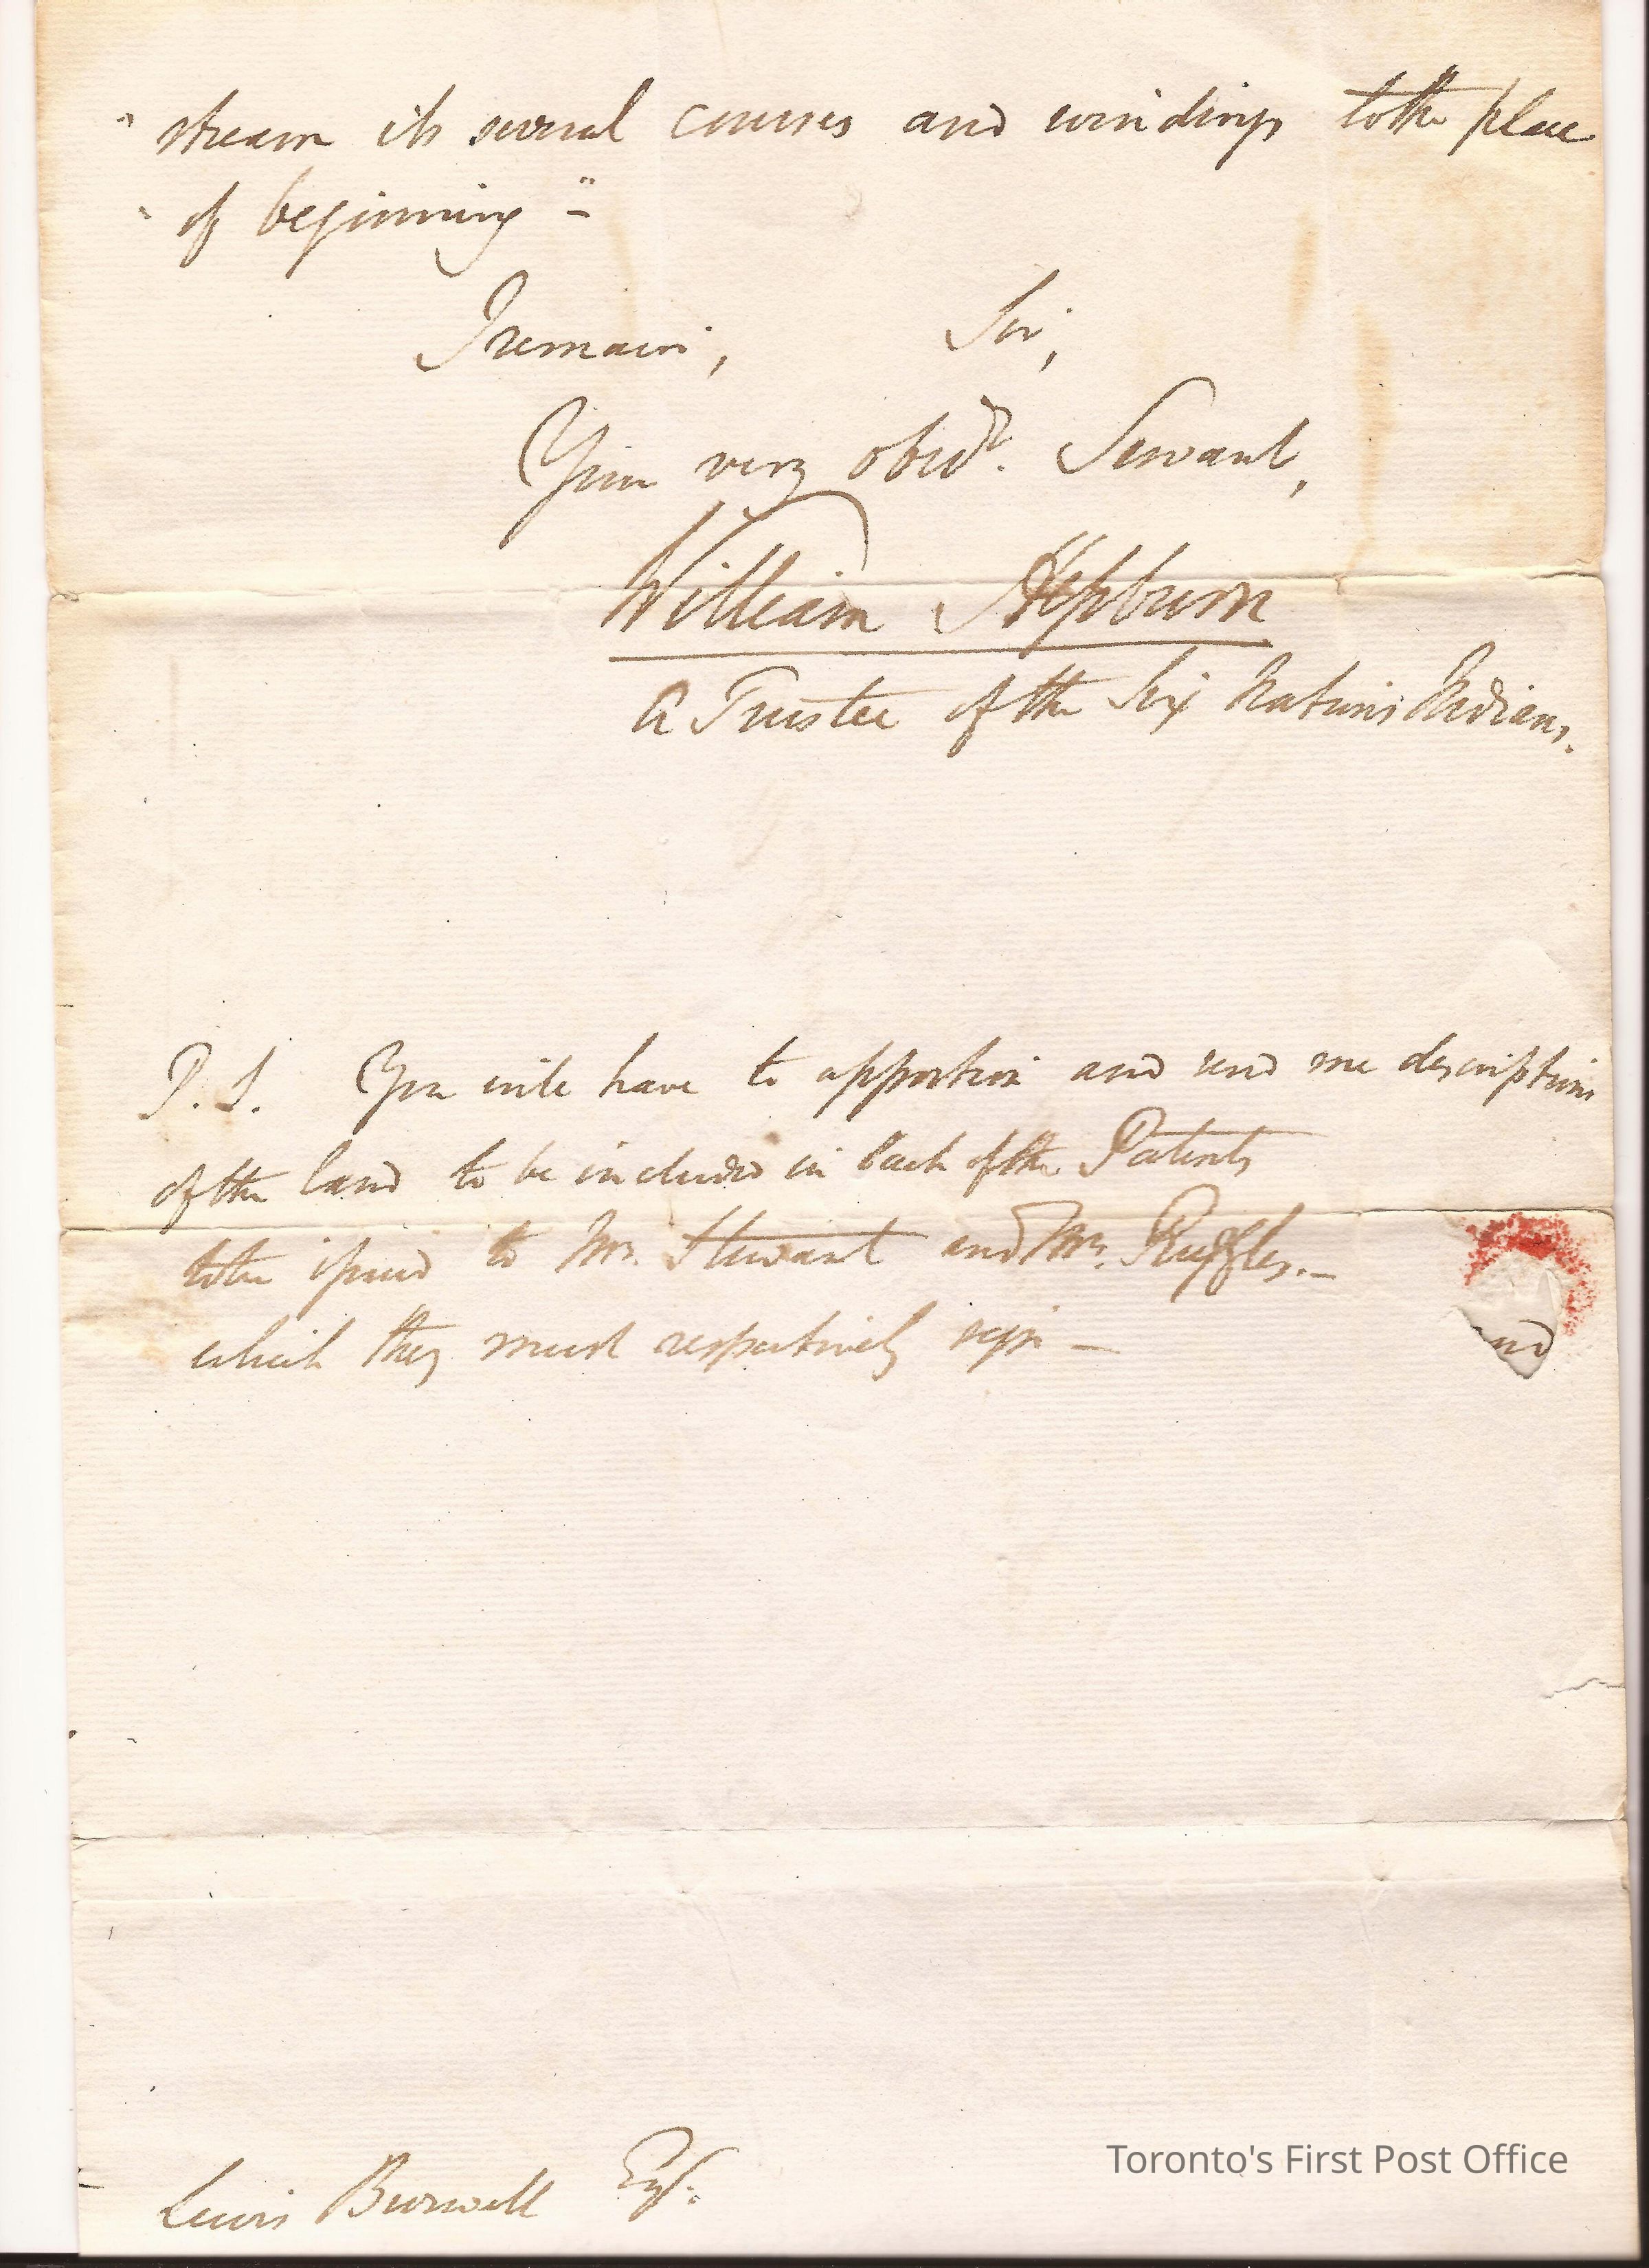 " stream its several courses and windings to the place
" of beginning" -
I remain, Sir,
Your very obedt. Servant,
William Hepburn
A Trustee of the Six Nations Indians.
P.S. You will have to apportion and send me descriptions
of the land to be included in Each of the Patents
to be issued to Mr. Stewart and Mr. Ruggles. —
which they must respectively sign —
and
Lewis Burwell Esq.
Toronto's First Post Office